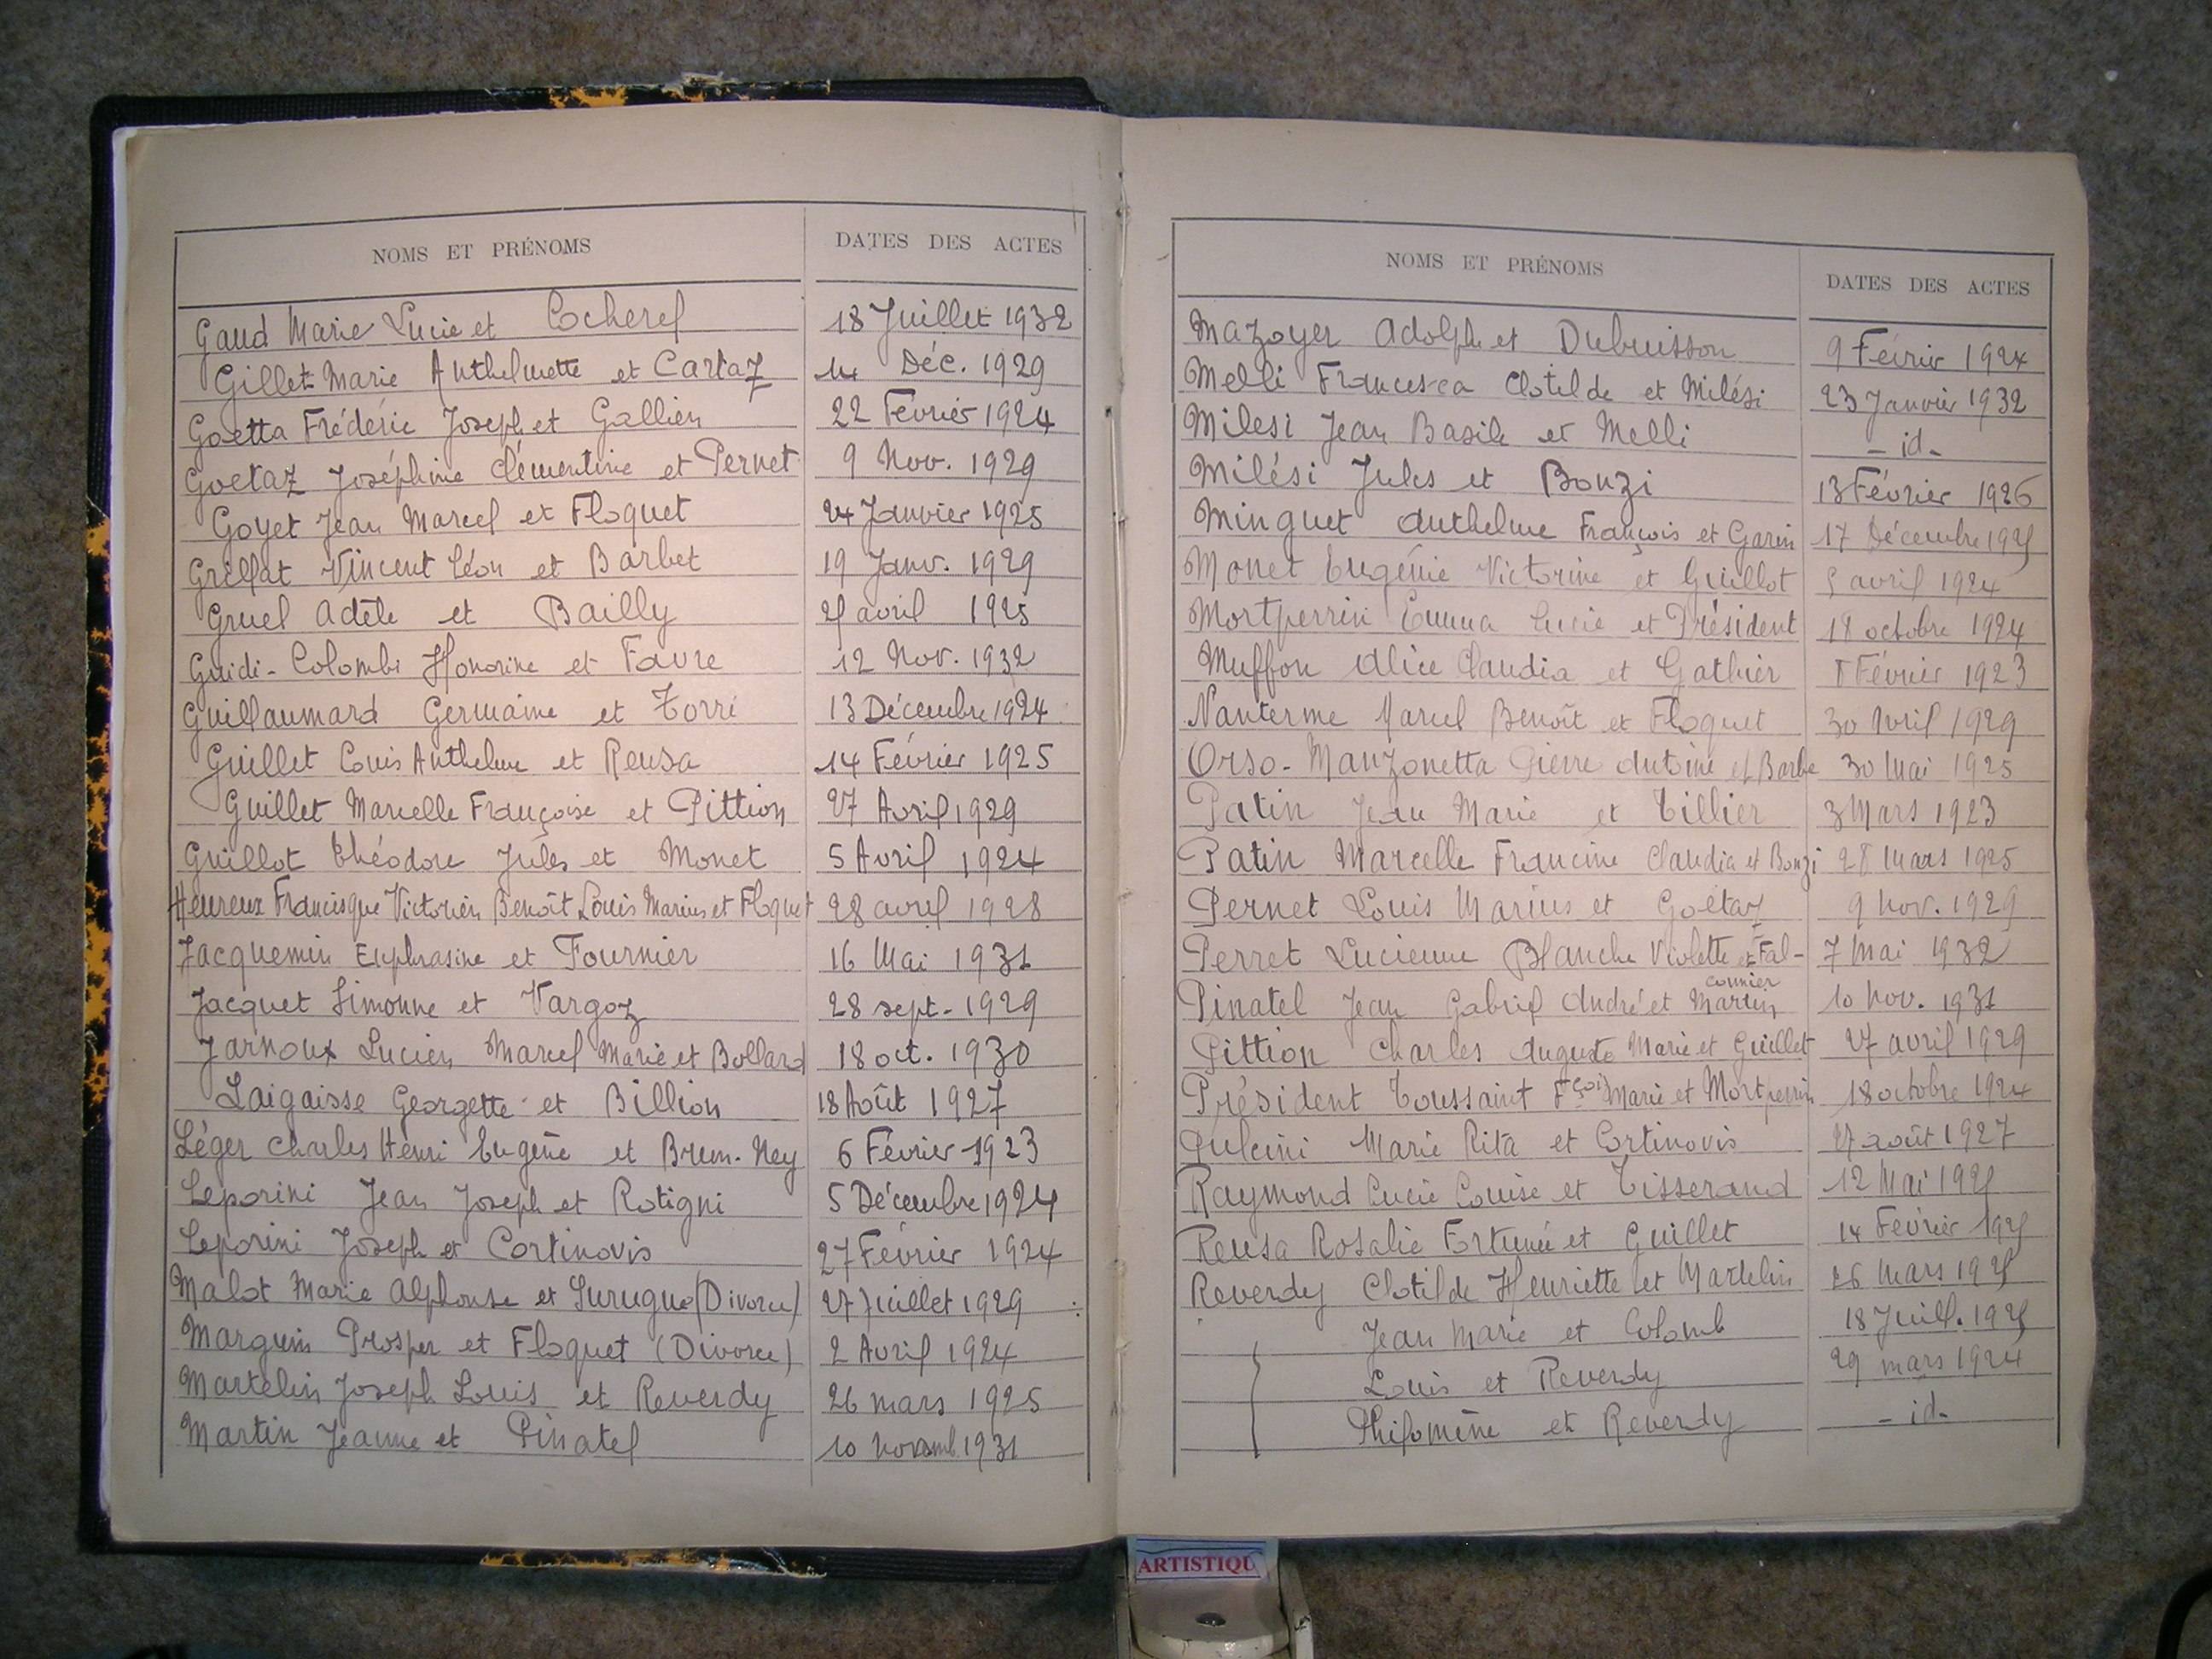 NOMS ET PRÉNOMS DATES DES ACTES
Gaud Marie Lucie et Cocherel 18 Juillet 1932
Gillet Marie Anthelmette et Cartaz 14 Déc. 1929
Goetta Frédéric Joseph et Gallien 22 Février 1924
Goetaz Joséphine Clémentine et Pernet 9 Nov. 1929
Goyet Jean Marcel et Floquet 24 Janvier 1925
Grillat Vincent Léon et Barbet 19 Janv. 1929
Gruel Adèle et Bailly 25 avril 1925
Guidi-Colombi Honorine et Favre 12 Nov. 1932
Guillaumard Germaine et Torri 13 Décembre 1924
Guillet Louis Anthelme et Reusa 14 Février 1925
Guillet Marcelle Françoise et Pittion 27 Avril 1929
Guillot Théodore Jules et Monet 5 Avril 1924
Heureux Francisque Victorien Benoît Louis Marius et Floquet 28 avril 1928
Jacquemin Euphrasine et Fournier 16 Mai 1931
Jacquet Simonne et Vargoz 28 sept. 1929
Jarnoux Lucien Marcel Marie et Bollard 18 oct. 1930
Laigaisse Georgette et Billion 18 Août 1927
Léger Charles Henri Eugène et Brun-Ney 6 Février 1923
Leporini Jean Joseph et Rotigni 5 Décembre 1924
Leporini Joseph et Cortinovis 27 Février 1924
Malot Marie Alphonse et Surugue (Divorce) 27 juillet 1929
Marguin Prosper et Floquet (Divorce) 2 Avril 1924
Martelin Joseph Louis et Reverdy 26 mars 1925
Martin Jeanne et Pinatel 10 novemb 1931
NOMS ET PRÉNOMS DATES DES ACTES
Mazoyer Adolphe et Dubuisson 9 Février 1924
Melli Francesca Clotilde et Milési 23 Janvier 1932
Milesi Jean Basile et Melli - id -
Milési Jules et Bonzi 13 Février 1926
Minguet Anthelme François et Garin 17 Décembre 1925
Monet Eugénie Victorine et Guillot 5 avril 1924
Mortperrin Emma Lucie et Président 18 octobre 1924
Muffon Alice Claudia et Gathier 8 Février 1923
Nanterme Marcel Benoît et Floquet 30 Avril 1929
Orso-Manzonetta Pierre Antoine et Barbe 30 Mai 1925
Patin Jean Marie et Tillier 3 Mars 1923
Patin Marcelle Francine Claudia et Bonzi 28 mars 1925
Pernet Louis Marius et Goëtaz 9 nov. 1929
Perret Lucienne Blanche Violette et Fal- 7 Mai 1932
connier
Pinatel Jean Gabriel André et Martin 10 nov. 1931
Pittion Charles Auguste Marie et Guillet 27 avril 1929
Président Toussaint Fçois Marie et Mortperrin 18 octobre 1924
Pulcini Marie Rita et Cortinovis 27 août 1927
Raymond Lucie Louise et Tisserand 12 Mai 1925
Reusa Rosalie Fortunée et Guillet 14 Février 1925
Reverdy Clotilde Henriette et Martelin 26 mars 1925
Jean Marie et Colomb 18 Juill. 1925
Louis et Reverdy 29 mars 1924
Philomène et Reverdy - id -
ARTISTIQU